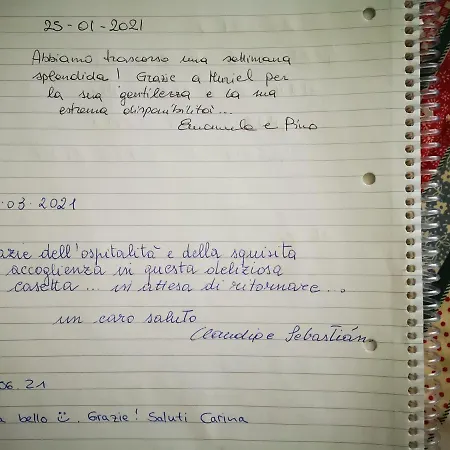 25-01-2021
Abbiamo trascorso una settimana
splendida! Grazie a Muriel per
la sua gentilezza e la sua
estrema disponibilità...
Emanuela e Pino
.03.2021
azie dell'ospitalità e della squisita
accoglienza in questa deliziosa
casetta... in attesa di ritornare...
un caro saluto
Claudio e Sebastián
06.21
a bello ☺. Grazie! Saluti Carina